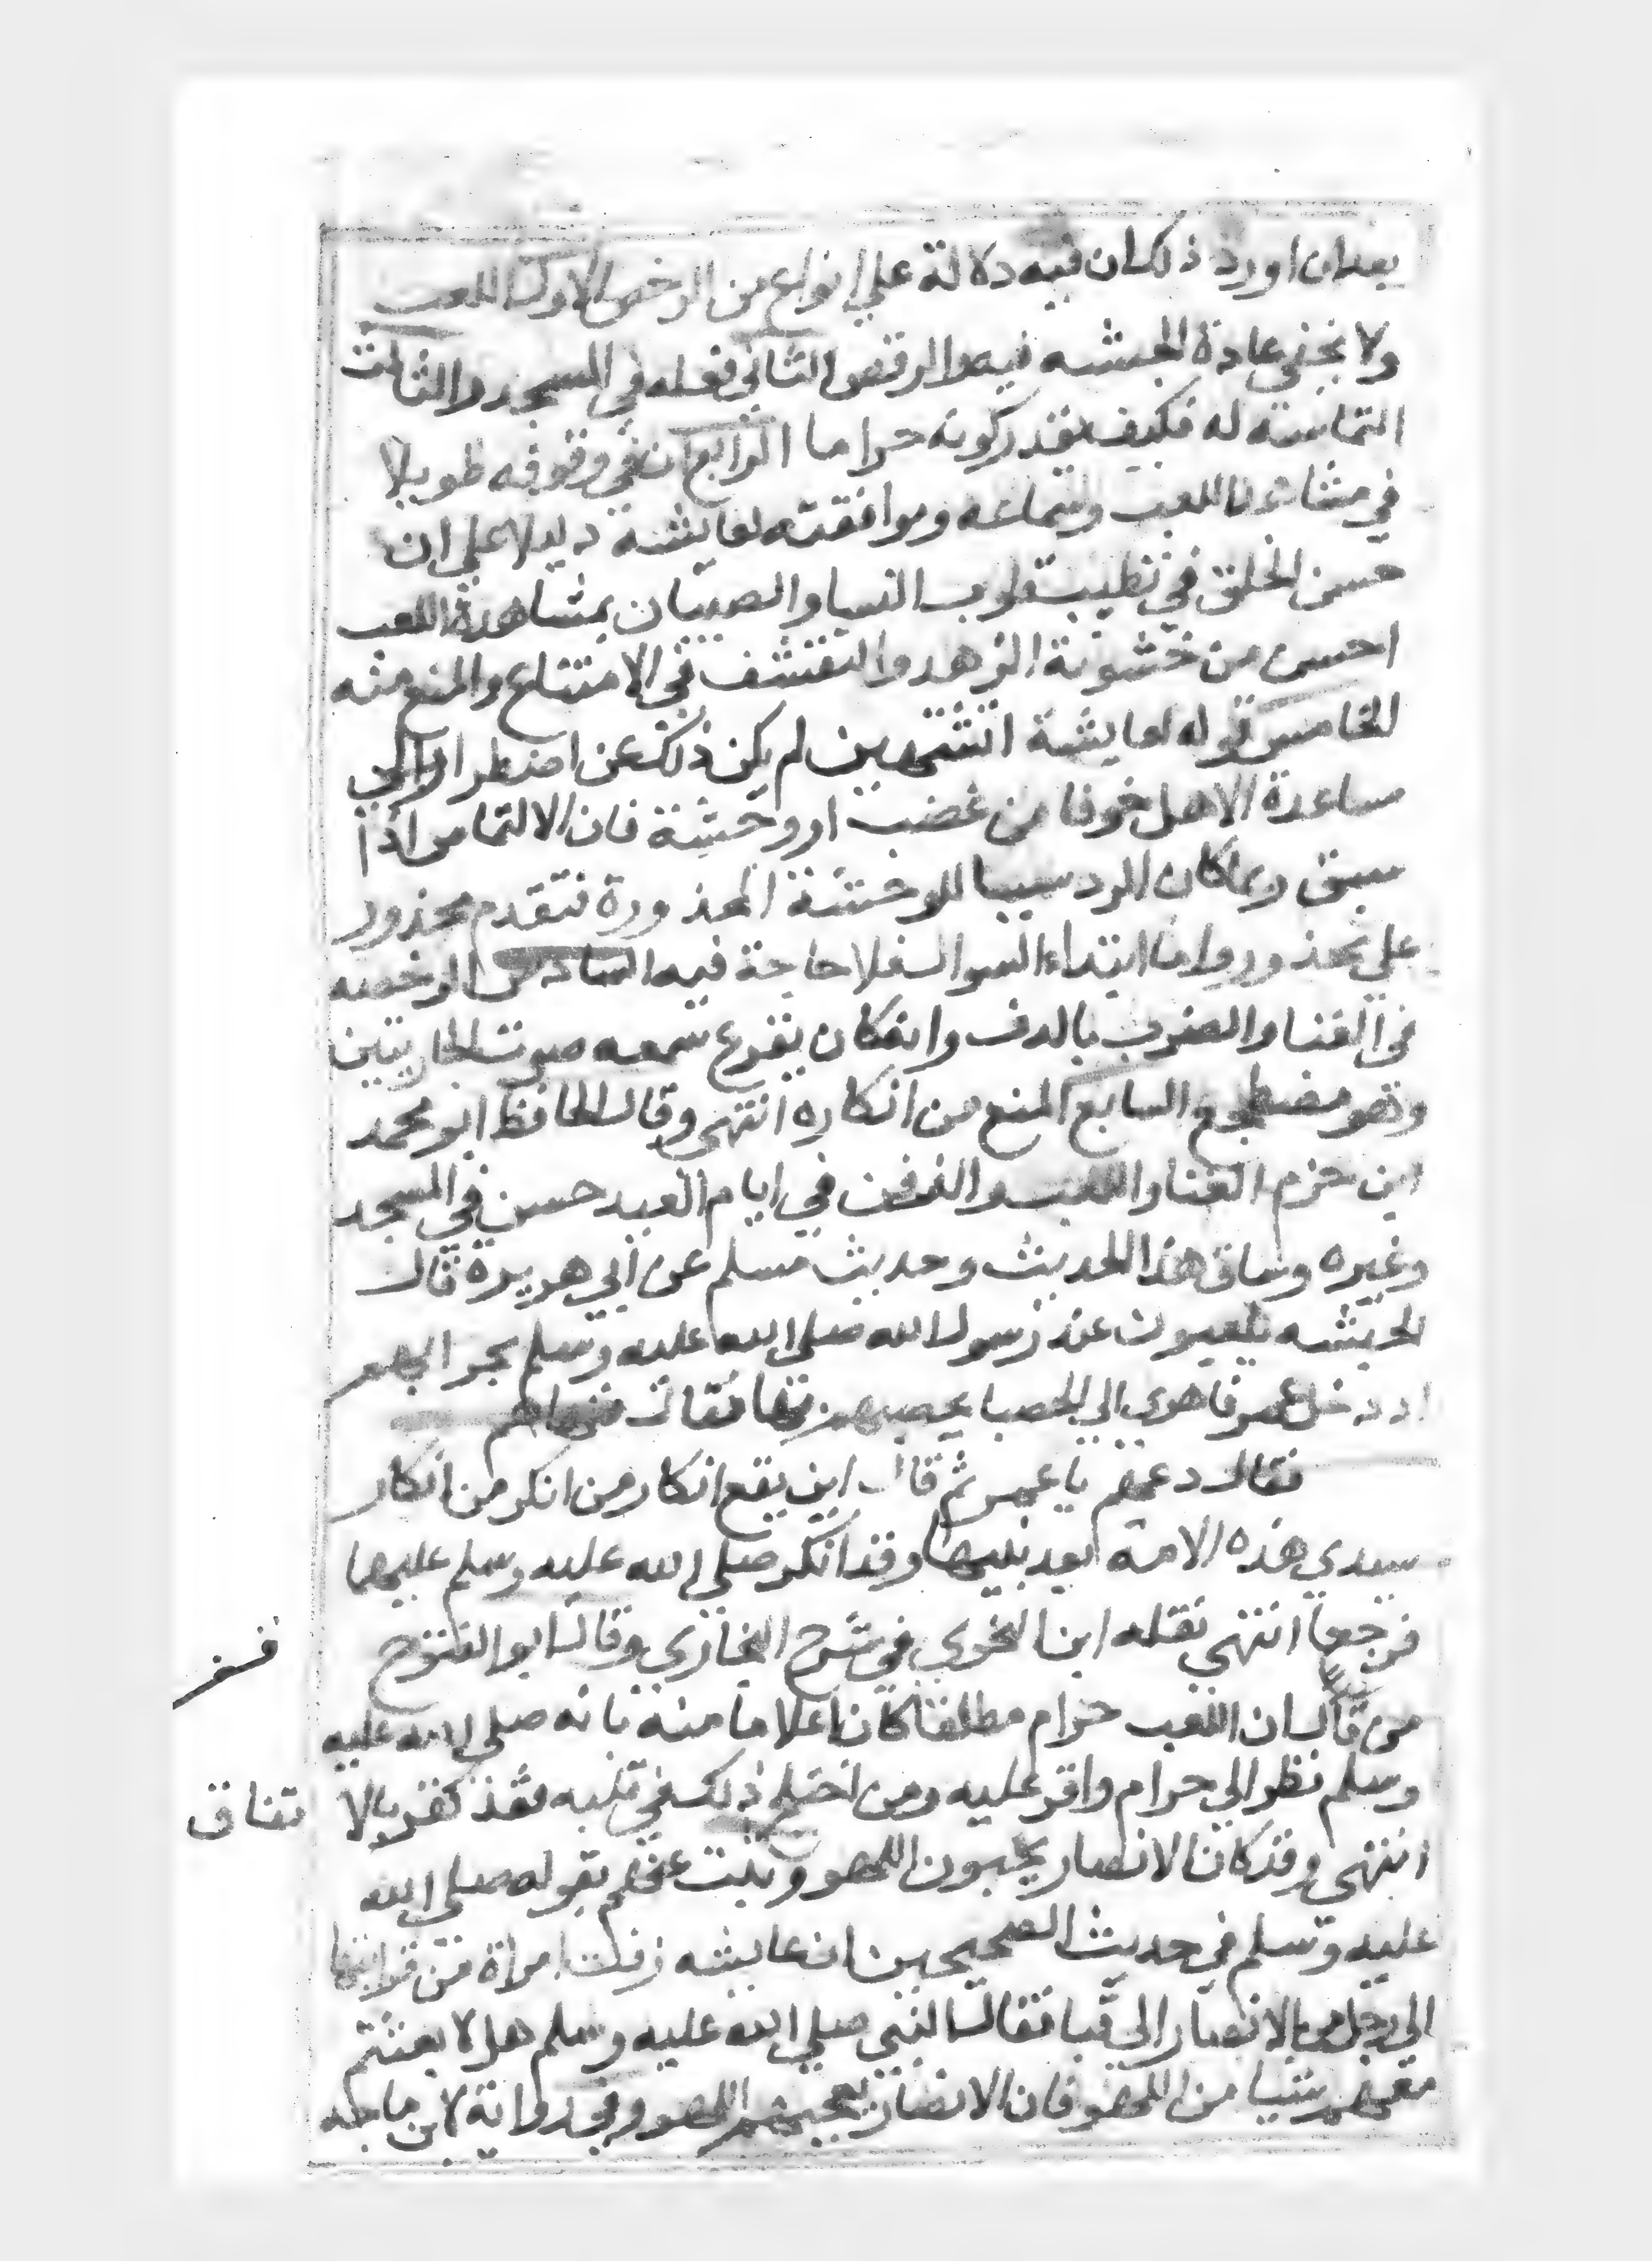 بعد ان اورد ذلك ان فيه دلالة علي انواع من الرخص الاول اللعب
ولا يخفي عادة الحبشه فيه والرقص الثاني فعله في المسجد والثالث
التماسه له فكيف يقدر كونه حراما الرابع ان في وقوفه طويلا
في مشاهدة اللعب وسماعه وموافقته لعايشة دليلا علي ان
حسن الخلق في تطييب قلوب النسا والصبيان بمشاهدة اللعب
احسن من خشونة الزهد والتقشف في الامتناع والمنع منه
الخامس قوله لعايشة اتشتهين لم يكن ذلك عن اضطرار الي
مساعدة الاهل خوفا من غضب او وحشة فان الالتماس اذا
سبق ربما كان الرد سببا للوحشة المحذورة فتقدم محذور
علي محذور واما ابتداء السوال فلا حاجة فيه السادس الرخصه
في الغنا والضرب بالدف وانه كان يقرع سمعه صوت الجاريتين
وهو مضطجع والسابع المنع من انكاره انتهي وقال الحافظ ابو محمد
ابن حزم الغنا واللعب والزفن في ايام العيد حسن في المسجد
وغيره وساق هذا الحديث وحديث مسلم عن ابي هريرة قال
الحبشه يلعبون عند رسول الله صلي الله عليه وسلم بحرابهم
اذ دخل عمر فاهوي الي الحصبا يحصبهم بها فقال
فقال دعهم يا عمر ثم قال اين يقع انكار من انكر من انكار
سيدي هذه الامة بعد نبيها وقد انكر صلي الله عليه وسلم عليهما
فرجعا انتهي نقله ابن النحوي في شرح البخاري وقال ابو الفتوح
من قال ان اللعب حرام مطلقا كان اعلاما منه بانه صلي الله عليه
وسلم نظر الي حرام واقر عليه ومن اختلج ذلك في قلبه فقد كفر بالا تفاق
انتهي وقد كان الانصار يحبون اللهو وثبت عنهم بقوله صلي الله
عليه وسلم في حديث الصحيحين ان عايشه زفت امراة من قرابتها
الي رجل من الانصار الي قبا فقال النبي صلي الله عليه وسلم هلا بعثتم
معهم شيا من اللهو فان الانصار يعجبهم اللهو وفي رواية لابن ماجه